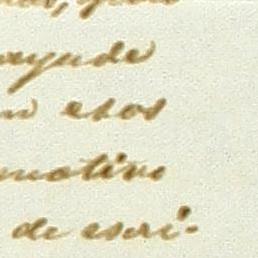 ayude
esos
motivo
de escri-